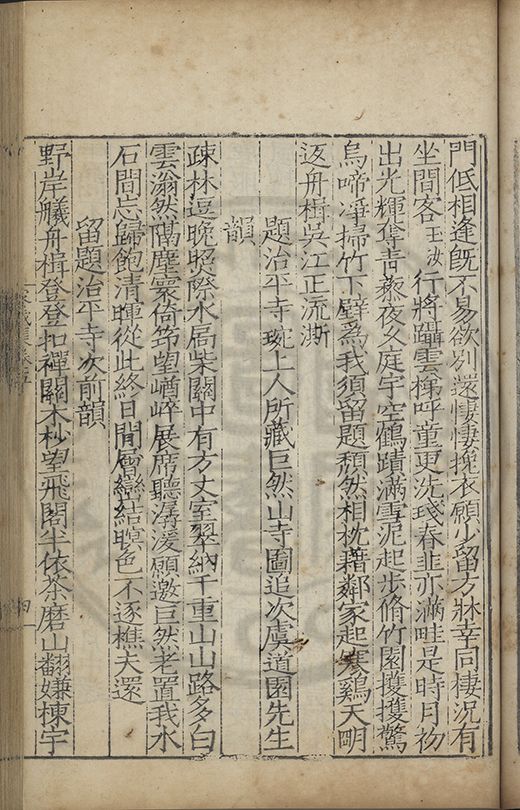 門低相逢旣不易欲別還悽悽挽衣願少留方牀幸同棲況有
坐間客王汝行將躡雲梯呼童更洗琖春韭亦滿畦是時月初
出光輝奪靑藜夜久庭宇空鶴蹟滿雪泥起步脩竹園擭擭驚
烏啼淨掃竹下壁爲我須留題頹然相枕藉鄰家起寒鷄天明
返舟楫吳江正流澌
題治平寺琁上人所藏巨然山寺圖追次虞道園先生
韻
疎林逗晚煚際水局柴關中有方丈室翠納千重山山路多白
雲滃然隔塵寰倚筇望崷崪展席聽潺湲願邀巨然老置我水
石間忘歸飽清暉從此終日閒層巒結暝色不逐樵夫還
留題治平寺次前韻
野岸艤舟楫登登扣禪關木杪望飛閣半依茶磨山翻嫌棟宇
四